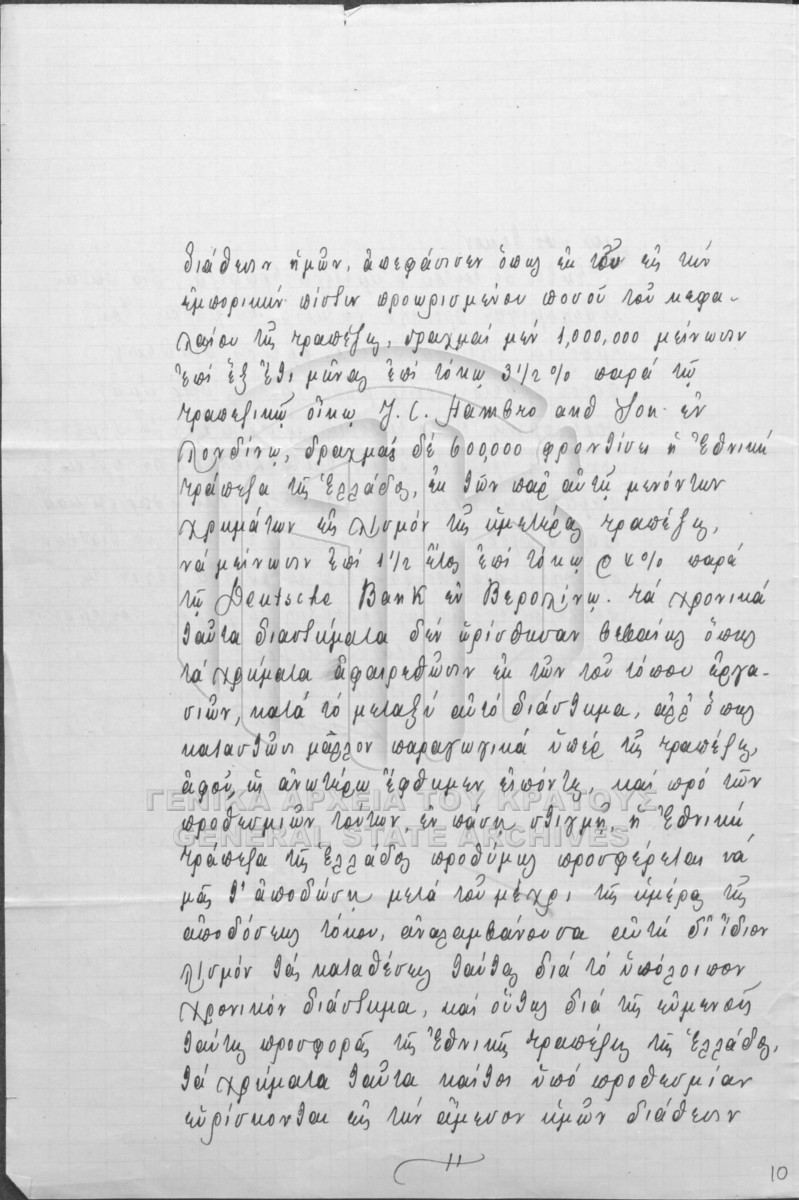 διάθεσιν ἡμῶν, ἀπεφάσισεν ὅπως ἐκ τοῦ εἰς τὴν
ἐμπορικὴν πίστιν προωρισμένου ποσοῦ τοῦ κεφα-
λαίου τῆς τραπέζης, δραχμαὶ μὲν 1,000,000 μείνωσιν
ἐπὶ ἓξ ἔτι μῆνας ἐπὶ τόκῳ 3 1/2 % παρὰ τῷ
τραπεζικῷ οἴκῳ J. C. Hambro and Son ἐν
Λονδίνῳ, δραχμάς δὲ 600,000 φροντίσει ἡ Ἐθνικὴ
τράπεζα τῆς Ἑλλάδος, ἐκ τῶν παρ' αὐτῇ μενόντων
χρημάτων εἰς λ/σμόν τῆς ἡμετέρας τραπέζης,
νὰ μείνωσιν ἐπὶ 1 1/2 ἔτος ἐπὶ τόκῳ 4 % παρὰ
τῇ Deutsche Bank ἐν Βερολίνῳ. Τὰ χρονικὰ
ταῦτα διαστήματα δὲν ὡρίσθησαν βεβαίως ὅπως
τὰ χρήματα ἀφαιρεθῶσιν ἐκ τῶν τοῦ τόπου ἐργα-
σιῶν, κατὰ τὸ μεταξὺ αὐτὸ διάστημα, ἀλλ' ὅπως
καταστῶσι μᾶλλον παραγωγικὰ ὑπὲρ τῆς τραπέζης,
ἀφοῦ, ὡς ἀνωτέρω ἔφθημεν εἰπόντες, καὶ πρὸ τῶν
προθεσμιῶν τούτων, ἐν πάσῃ στιγμῇ, ἡ Ἐθνικὴ
τράπεζα τῆς Ἑλλάδος προθύμως προσφέρεται νὰ
μᾶς τ' ἀποδώσῃ μετὰ τοῦ μέχρι τῆς ἡμέρας τῆς
ἀποδόσεως τόκου, ἀναλαμβάνουσα αὐτὴ δι' ἴδιον
λ/σμόν τὰς καταθέσεις ταύτας διὰ τὸ ὑπόλοιπον
χρονικὸν διάστημα, καὶ οὕτως διὰ τῆς εὐμενοῦς
ταύτης προσφορᾶς τῆς Ἐθνικῆς τραπέζης τῆς Ἑλλάδος,
τὰ χρήματα ταῦτα καίτοι ὑπὸ προθεσμίαν
εὑρίσκονται εἰς τὴν ἄμεσον ἡμῶν διάθεσιν
ΓΕΝΙΚΑ ΑΡΧΕΙΑ ΤΟΥ ΚΡΑΤΟΥΣ
GENERAL STATE ARCHIVES
10